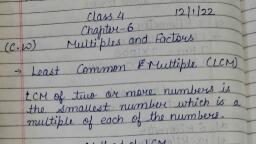 Class 4 12/1/22
Chapter-6
(C.W) Multiples and Factors
→ Least Common Multiple (LCM)
LCM of two or more numbers is
the smallest number which is a
multiple of each of the numbers.